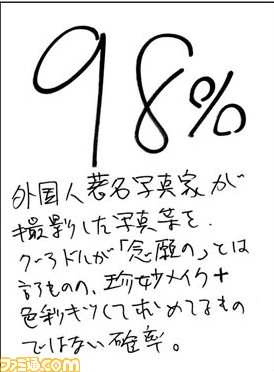 98%
外国人著名写真家が
撮影した写真集を、
グラドルが「念願の」とは
言うものの、珍妙メイク+
色彩キツくておめてるもの
ではない確率。
ファミ通.com